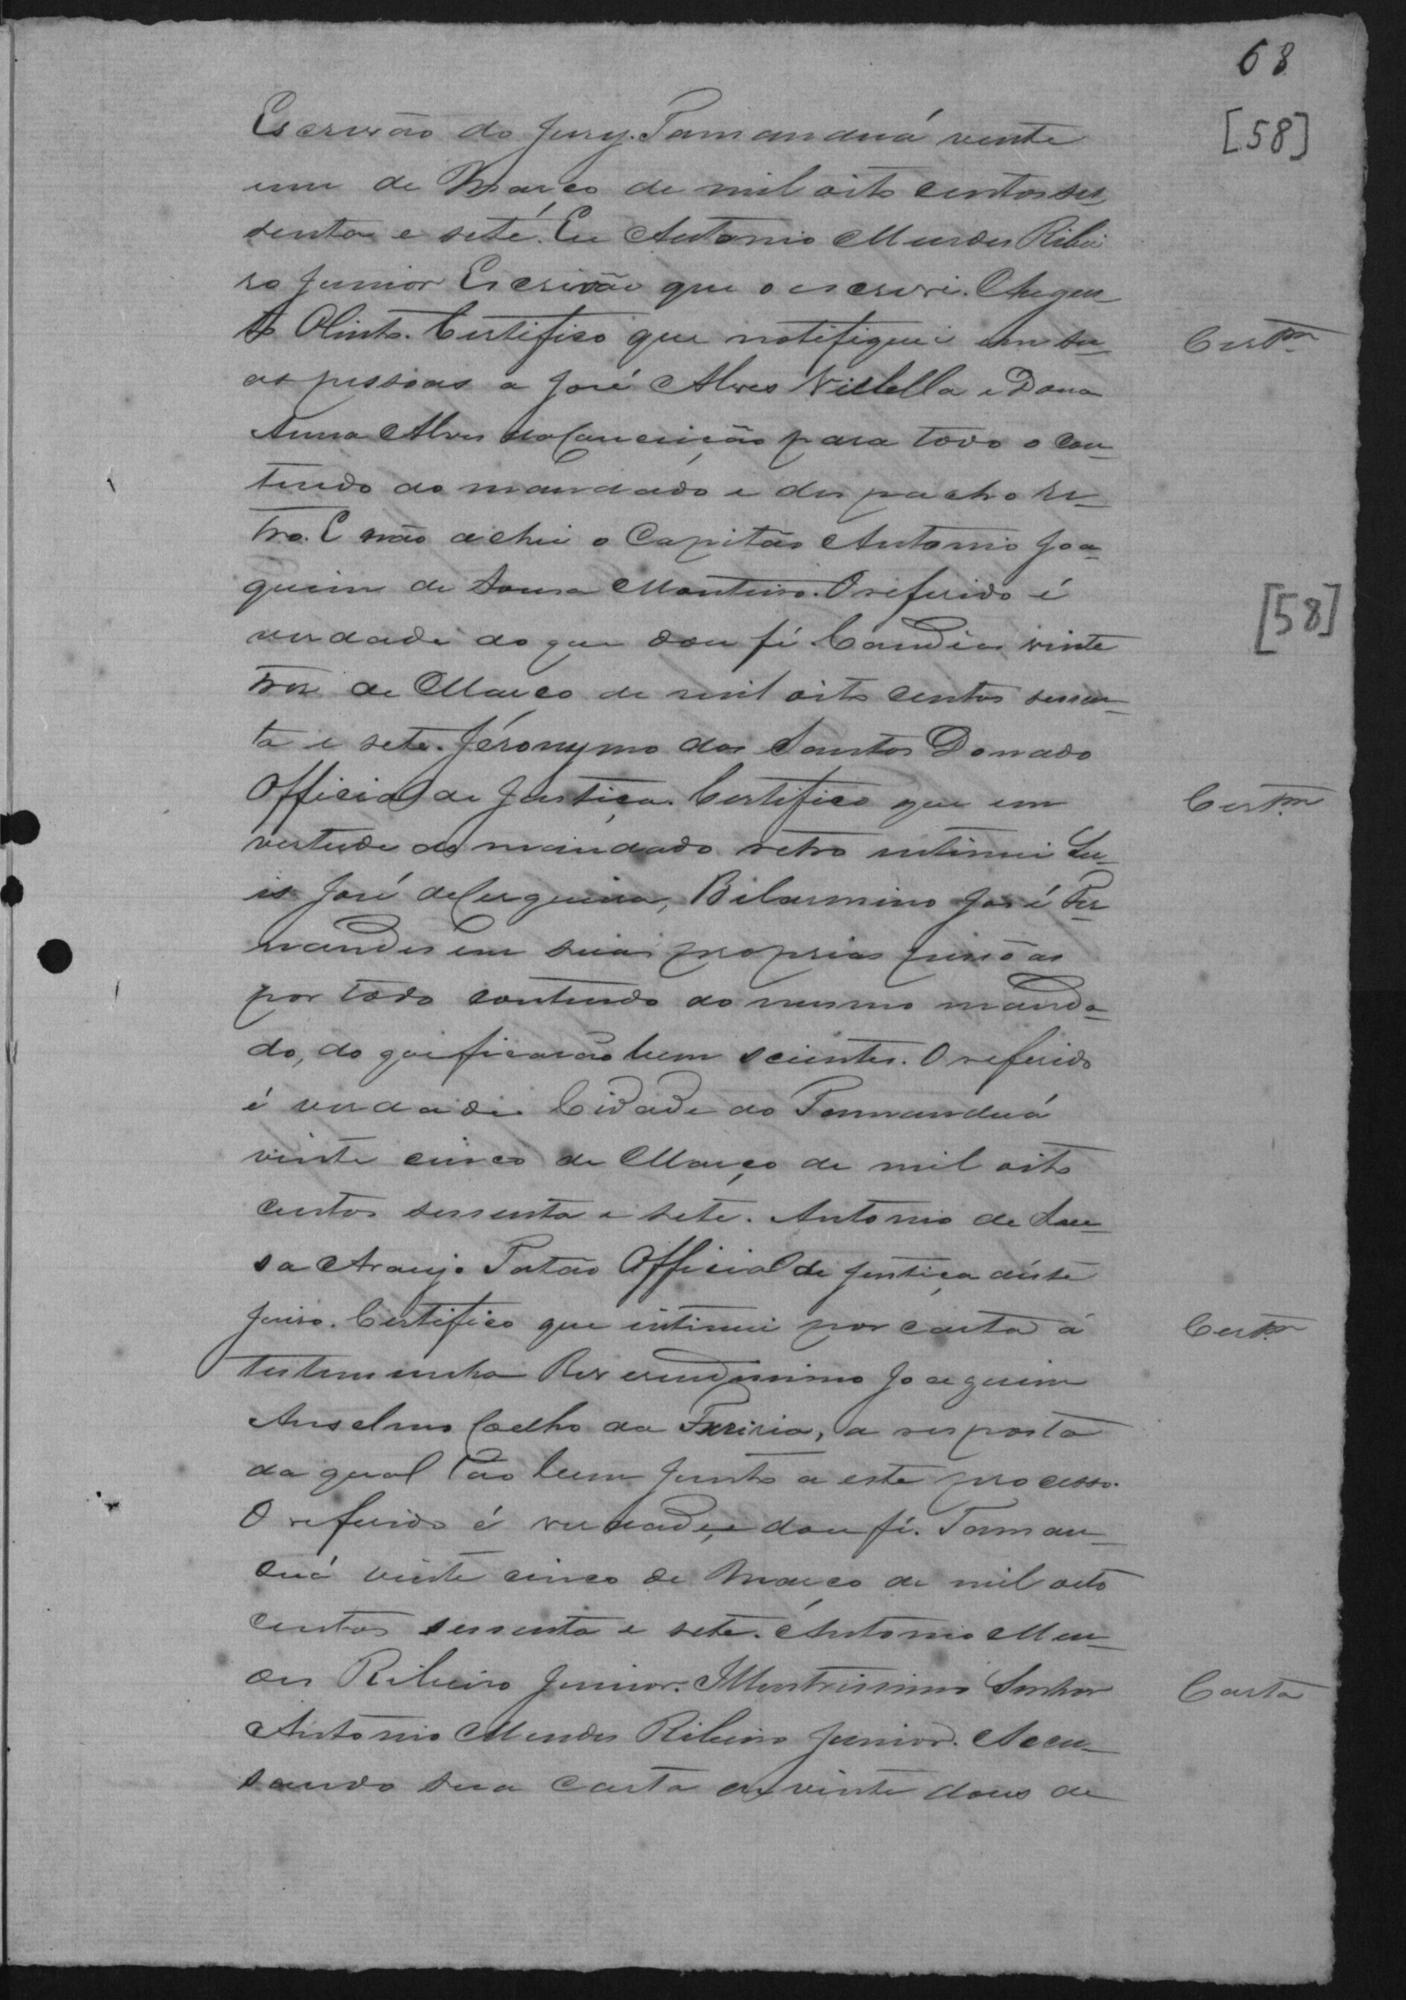 68
[58]
Escrivão do Jury. Tamanduá vinte
um de Março de mil oito centos ses
senta e sete. Eu Antonio Mendes Ribei
ro Junior Escrivão que o escrevi.
Olinto. Certifico que notifiquei em su-
Certam
as pessoas a José Alves Villella e Dona
Anna Alves da Conceição para todo o con-
teudo do mandado e despacho re-
tro. E não achei o Capitão Antonio Joa-
quim de Sousa Monteiro. O referido é
[58]
verdade do que dou fé. Candeias vinte
tres de Março de mil oito centos sessen-
ta e sete. Jéronymo dos Santos Donado
Official de Justiça. Certifico que em
Certam
vertude do mandado retro intimei Lu-
is José de Cerqueira, Bilarmino José Fer
nandes em suas proprias pessôas
por todo conteudo do mesmo manda-
do, do que ficarão bem scientes. O referido
é verdade Cidade do Tamanduá
vinte cinco de Março de mil oito
centos sessenta e sete. Antonio de Sou-
sa Araujo Patão Official de Justiça déste
Juiso. Certifico que intimei por carta á
Certam
testemunha Reverendissimo Joaquim
Anselmo Coelho da, a resposta
da qual tão bem junto a este processo.
O referido é verdade, e dou fé. Taman-
duá vinte cinco de Março de mil oito
centos sessenta e sete. Antonio Men-
des Ribeiro Junior. Illustrissimo Senhor
Carta
Antonio Mendes Ribeiro Junior. Accu-
sando sua carta de vinte dous de